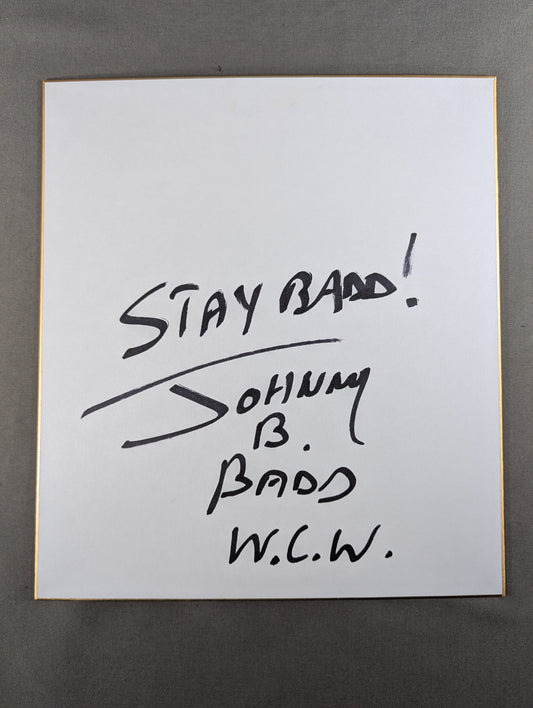 STAY BADD!
JOHNNY
B.
BADD
W.C.W.